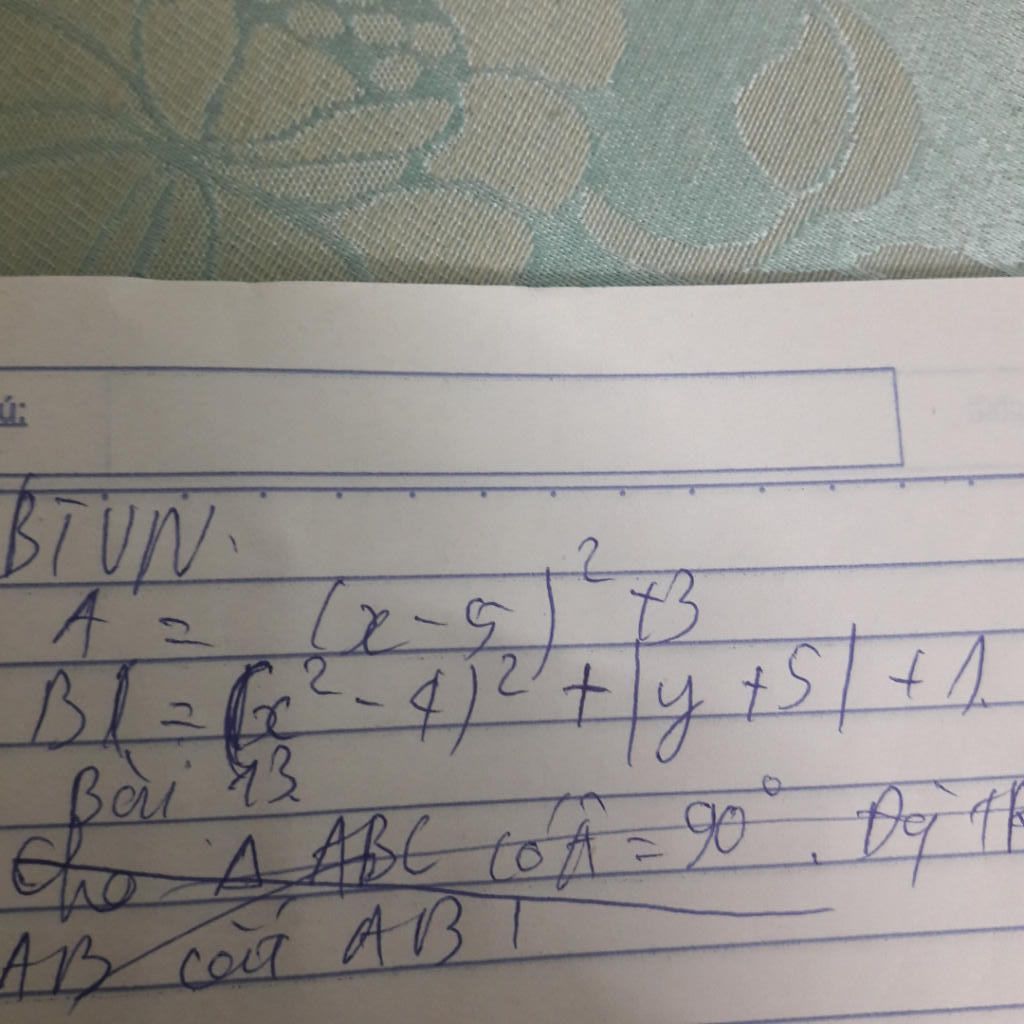 ú:
BTVN.
A = (x-5)² +3
B = (x²-4)² + |y +5| +1.
Bài 13
Cho Δ ABC có Â = 90°.
AB của AB